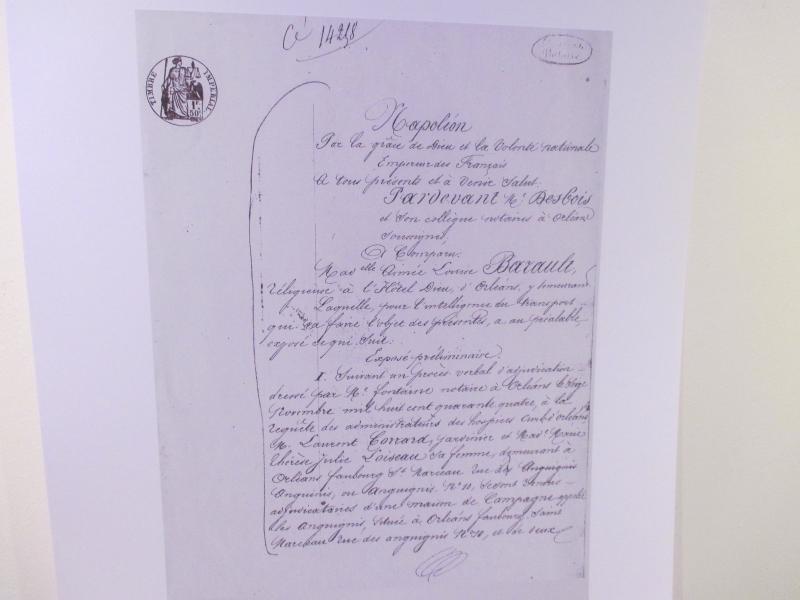 Cé 14258
TIMBRE IMPÉRIAL
1F
50C
Napoléon
Par la grâce de Dieu et la Volonté nationale
Empereur des Français
A tous présents et à venir Salut.
Pardevant Me Desbois
et son collègue notaires à Orléans
soussignés,
A Comparu.
Madelle Aimée Louise Barault,
religieuse à l'Hôtel Dieu, d'Orléans, y demeurant
Laquelle, pour l'intelligence du transport
qui va faire l'objet des présentes, a au préalable
exposé ce qui suit:
Exposé préliminaire.
I. Suivant un procès verbal d'adjudication
dressé par Me fontaine notaire à Orléans le
Novembre mil huit cent quarante quatre, à la
requête des administrateurs des hospices d'Orléans
M. Laurent Corrard, jardinier et Made Marie
thérèse Julie Loiseau sa femme, demeurant à
Orléans faubourg St Marceau rue des Anguignis
ou Anguignis No 10, se sont rendus
adjudicataires d'une maison de Campagne appelée
les Anguignis, située à Orléans faubourg Saint
Marceau rue des anguignis No 10, et de deux